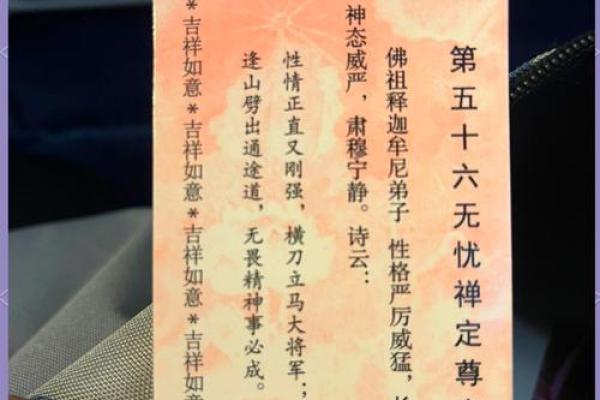 第五十六无忧禅定尊
佛祖释迦牟尼弟子 性格严厉威猛，
神态威严，肃穆宁静。诗云：
性情正直又刚强，横刀立马大将军；
逢山劈出通途道，无畏精神事必成。
*吉祥如意*吉祥如意*吉祥如意*吉祥如意